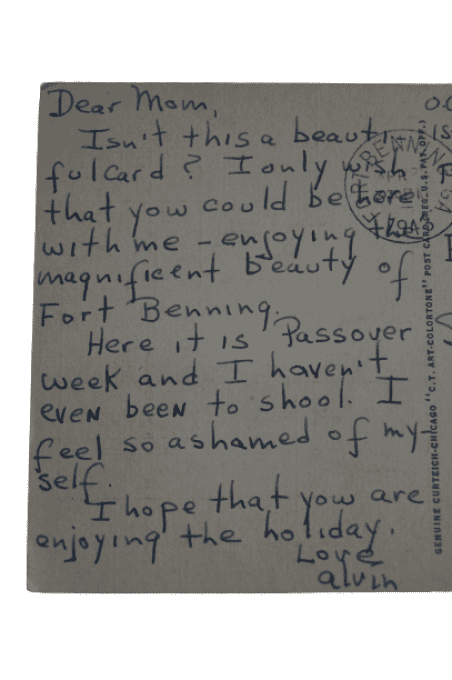 Dear Mom,
Isn't this a beauti-
ful card? I only wish
that you could be here
with me - enjoying the
magnificent beauty of
Fort Benning.
Here it is Passover
week and I haven't
even been to shool. I
feel so ashamed of my-
self.
I hope that you are
enjoying the holiday.
Love
Alvin
FORT BENNIN
GENUINE CURTEICH-CHICAGO "C.T. ART-COLORTONE" POST CARD (REG. U.S. PAT. OFF.)